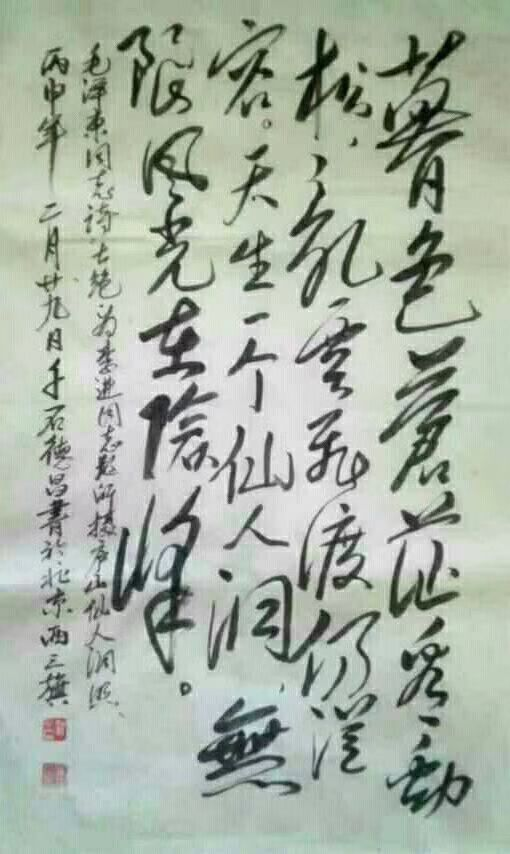 暮色蒼茫看劲
松，乱雲飛渡仍從
容。天生一个仙人洞，無
限风光在險峰。
毛泽东同志诗七绝为李进同志题所摄庐山仙人洞照、
丙申年 二月廿九日 石德昌書於北京西三旗